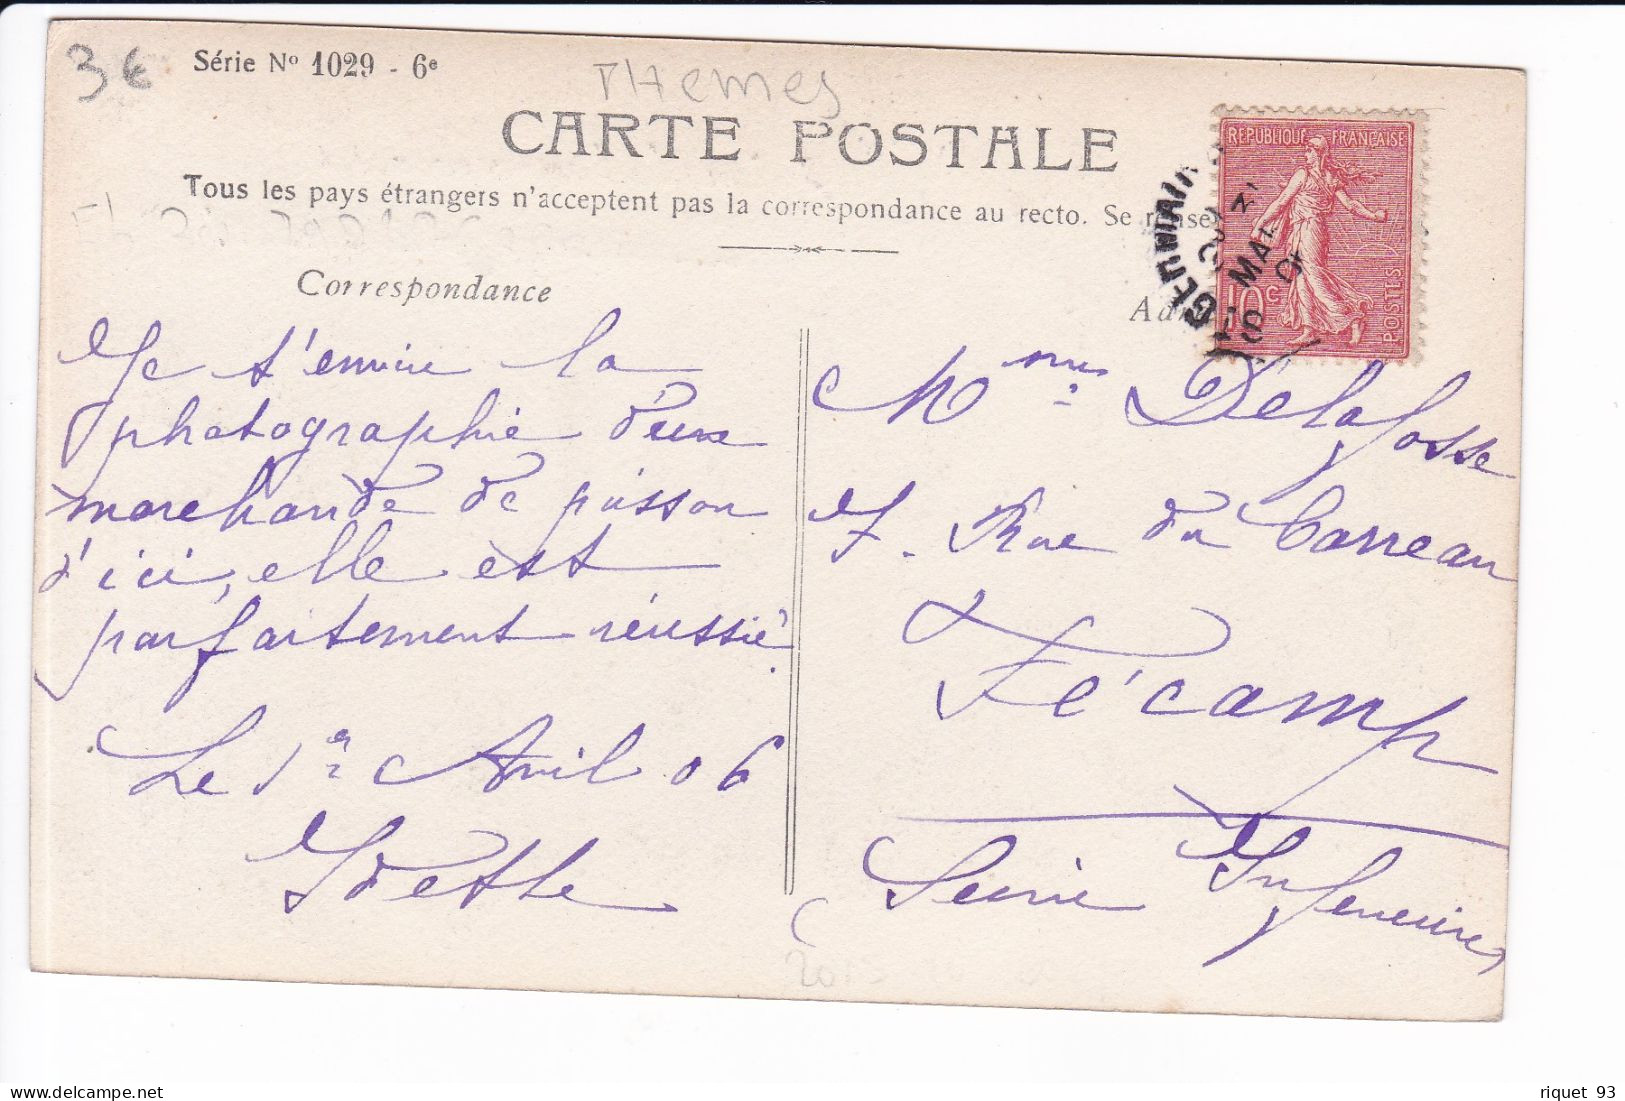 3€
Série Nº 1029 - 6e
THemes
CARTE POSTALE
Tous les pays étrangers n'acceptent pas la correspondance au recto. Se
Correspondance
REPUBLIQUE FRANÇAISE
10c
POSTES
GERMAIN
MAI
Je t'envoie la
photographie d'une
marchande de poisson
d'ici, elle est
parfaitement réussie.
Le 1er Avril 06
Odette
Mme Delafosse
7. Rue du Carreau
Fécamp
Seine Inférieure
riquet 93